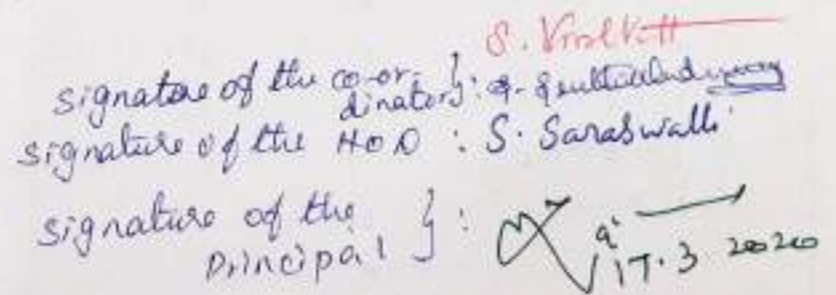 S.
signature of the co-or-
dinator} :
signature of the HOD : S. Saraswathi
signature of the
principal } :
17.3 2020